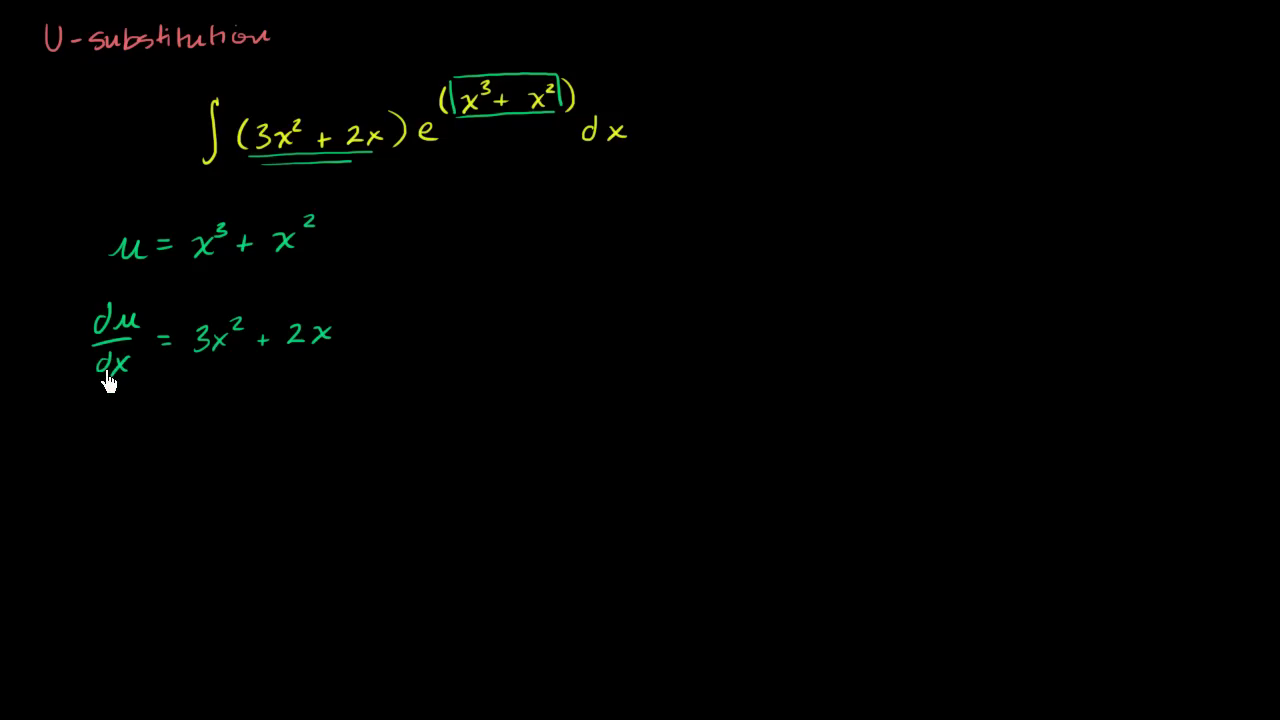 U-substitution
∫ (3x² + 2x) e^(x³ + x²) dx
u = x³ + x²
du/dx = 3x² + 2x